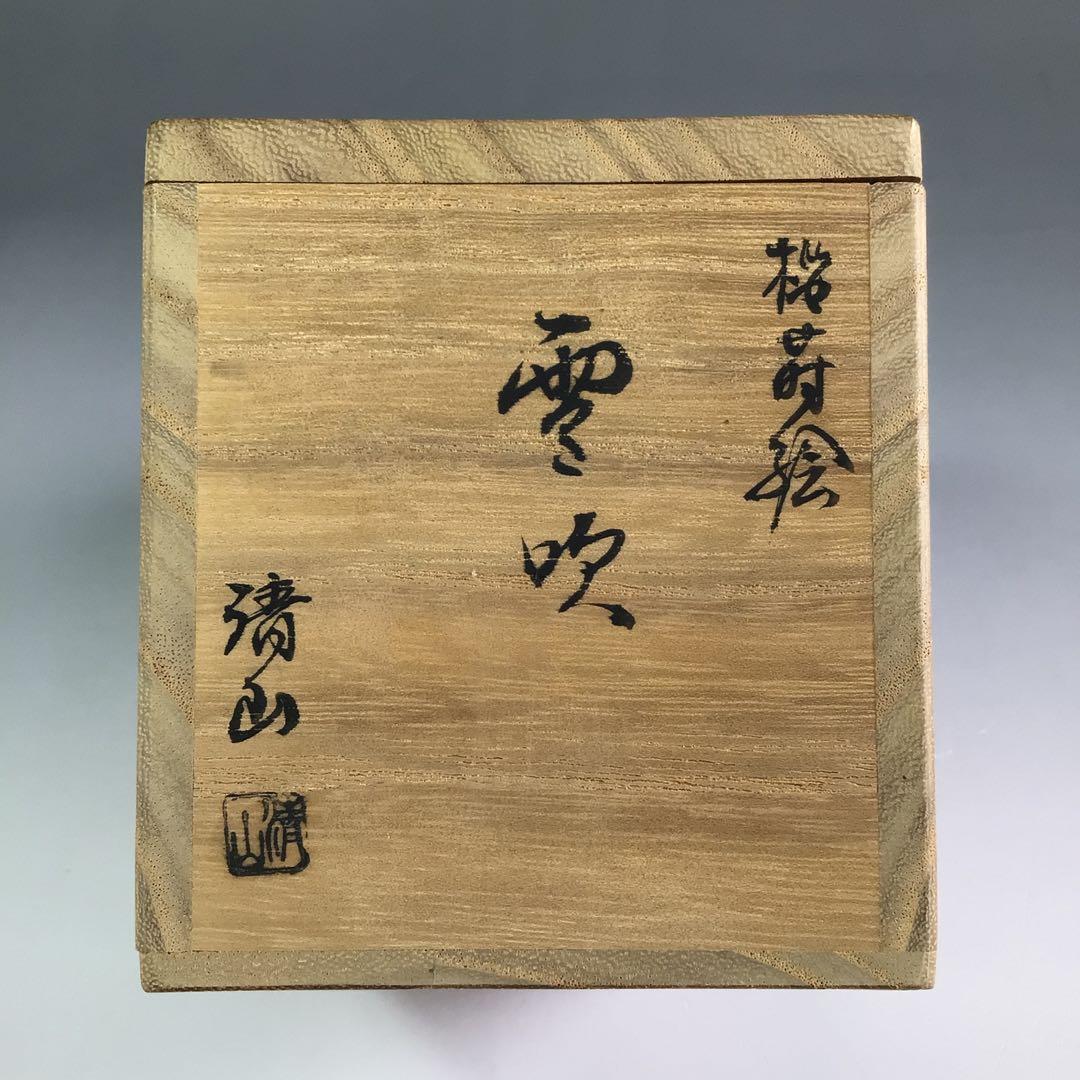 蒔絵
雪吹
清山
清山